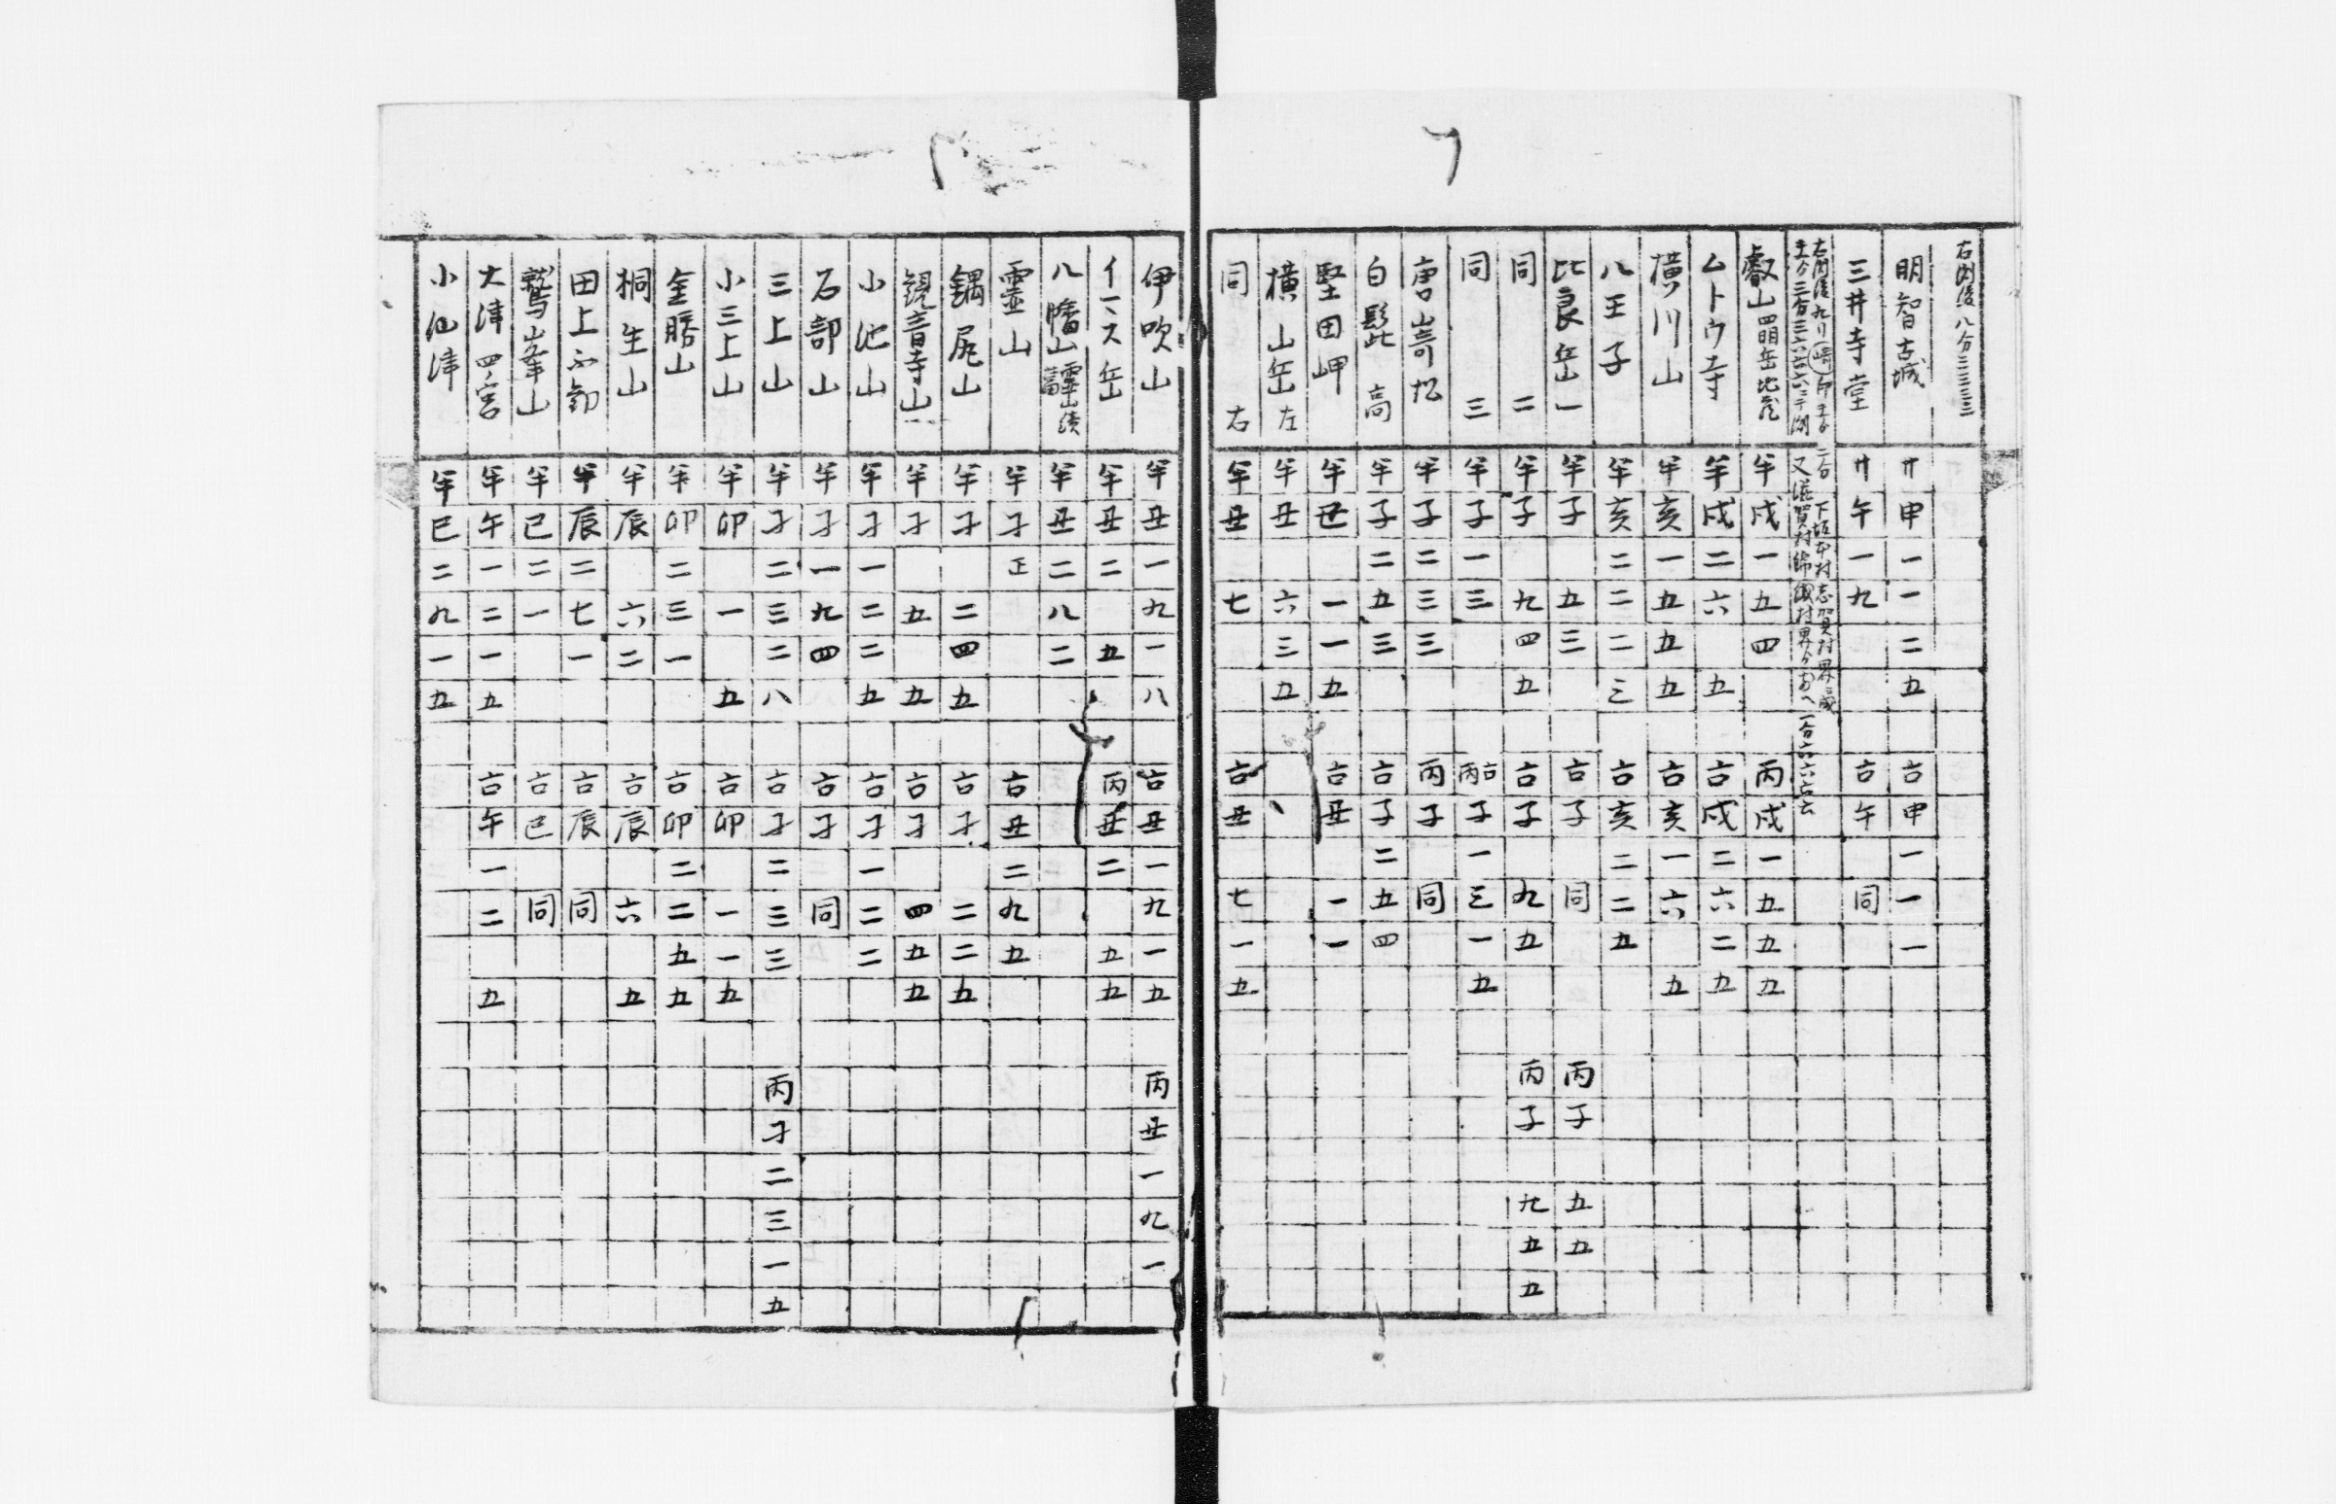 右関後八分三三三三
明智古城 廾申一一二五 古申一一一
三井寺堂 廾午一九 古午同
下坂本村志賀村界
又滋賀村 村界 一分六六六六
叡山四明岳 半戌一五四 丙戌一五五五
ムトウ寺 半戌二六 五 古戌二六二五
横川山 半亥一五五五 古亥一六 五
八王子 半亥二二二三 古亥二二五
比良岳一 半子 五三 古子 同 丙子 五五
同二 半子 九四五 古子 九五 丙子 九五五
同三 半子一三 丙古子一三一五
唐崎松 半子二三三 丙子 同
白髭高 半子二五三 古子二五四
堅田岬 半丑 一一五 古丑 一一
横山岳左 半丑 六三五
同右 半丑 七 古丑 七一五
伊吹山 半丑一九一八 古丑一九一五 丙丑一九一
半丑二 五 丙丑二 五五
八幡山 半丑二八二
霊山 半子正 古丑二九五
鍋尻山 半子 二四五 古子 二二五
観音寺山 半子 五 五 古子 四五五
小池山 半子一二二五 古子一二二
石部山 半子一九四 古子 同
三上山 半子二三二八 古子二三三 丙子二三一五
小三上山 半卯 一 五 古卯 一一五
金勝山 半卯二三一 古卯二二五五
桐生山 半辰 六二 古辰 六 五
田上不動 半辰二七一 古辰 同
鷲峯山 半巳二一 古巳 同
大津四ノ宮 半午一二一五 古午一二 五
小仙津 半巳二九一五